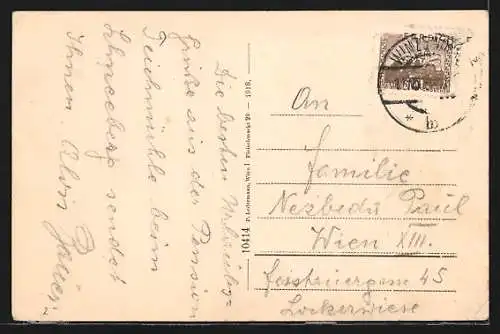 Die besten Urlaubs-
grüße aus der Pension
Teichmühle beim
Schneeberg sendet
Ihnen
10414 P. Ledermann, Wien I Fleischmarkt 20 — 1918.
An
Familie
Nezbeda Paul
Wien XIII.
45
Lockerwiese
* b